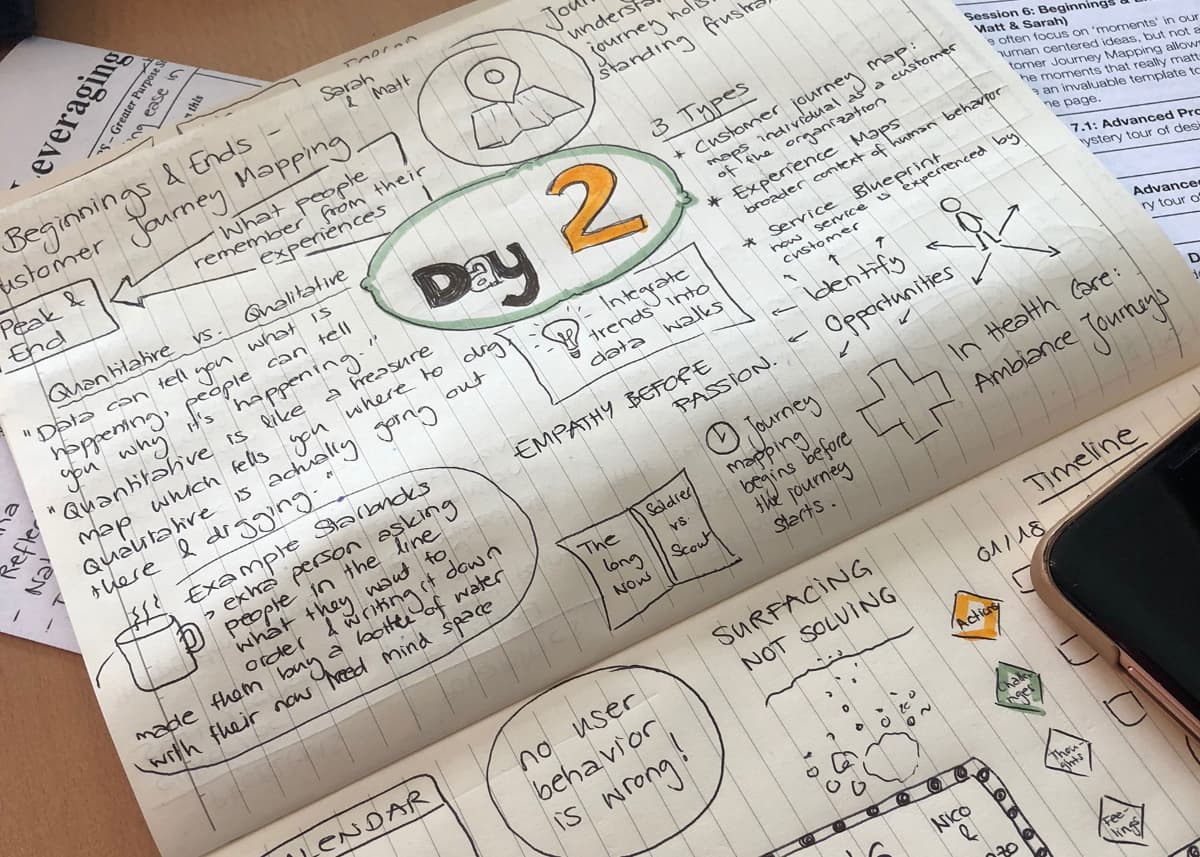 everaging
Greater Purpose
ease in
this
Sarah
& Matt
Beginnings & Ends -
ustomer Journey Mapping
What people
remember from their
experiences
Peak &
End
Day 2
understa
journey holis
standing frustra
3 Types
* Customer journey map:
maps individual as a customer
of the organization
* Experience Maps
broader context of human behavior
* Service Blueprint
how service is experienced by
customer
Identify
Opportunities
Quantitative vs. Qualitative
"Data can tell you what is
happening, people can tell
you why it's happening."
"Quantitative is like a treasure
map which tells you where to dig,
Qualitative is actually going out
there & digging."
Integrate
trends into
data walks
EMPATHY BEFORE
PASSION.
Example Starbucks
extra person asking
people in the line
what they want to
order & writing it down
made them buy a bottle of water
with their now freed mind space
The
long
Now
Soldier
vs.
Scout
Journey
mapping
begins before
the journey
starts.
In Health Care:
Ambiance Journeys
SURFACING
NOT SOLVING
no user
behavior
is wrong!
LENDAR
Timeline
01/18
Actions
Challe
nges
Thou-
ghts
Fee-
lings
Nico
&
Session 6: Beginnings &
Matt & Sarah)
often focus on 'moments' in our
uman centered ideas, but not a
tomer Journey Mapping allow
he moments that really matt
an invaluable template
ne page.
7.1: Advanced Pro
ystery tour of desi
Advance
ry tour of
Refle